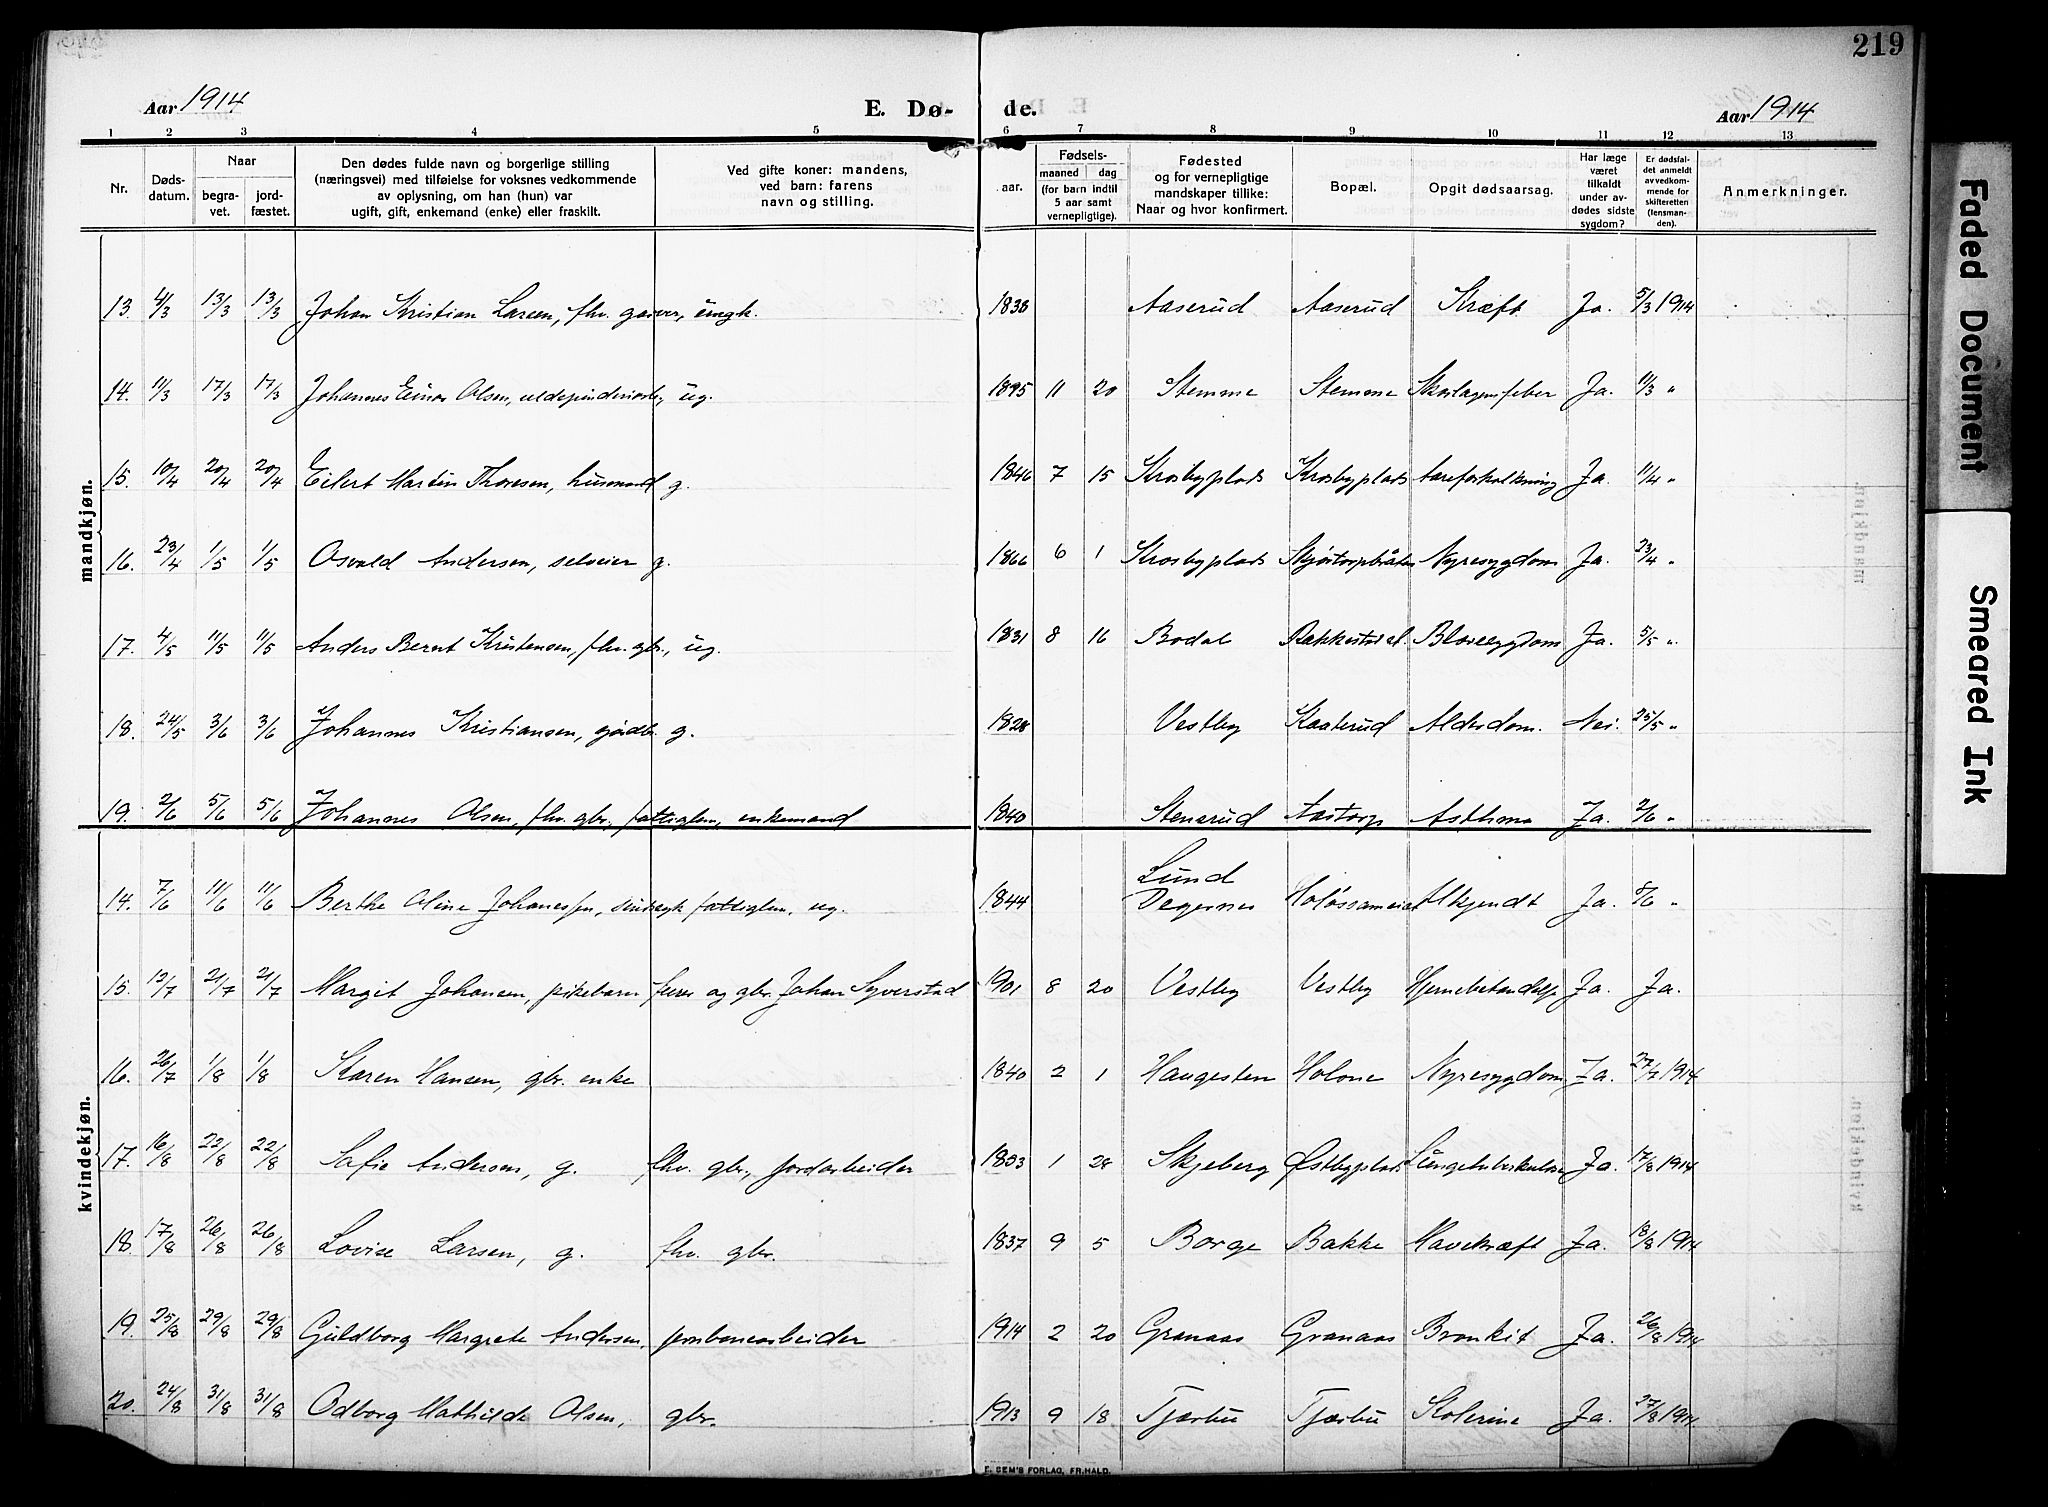 219
Aar 1914 E. Dø- de. Aar 1914
1 2 3 4 5 6 7 8 9 10 11 12 13
Nr.
Døds-
datum.
Naar
begra-
vet.
jord-
fæstet.
Den dødes fulde navn og borgerlige stilling
(næringsvei) med tilføielse for voksnes vedkommende
av oplysning, om han (hun) var
ugift, gift, enkemand (enke) eller fraskilt.
Ved gifte koner: mandens,
ved barn: farens
navn og stilling.
Fødsels-
aar.
maaned dag
(for barn indtil
5 aar samt
vernepligtige).
Fødested
og for vernepligtige
mandskaper tillike:
Naar og hvor konfirmert.
Bopæl.
Opgit dødsaarsag.
Har læge
været
tilkaldt
under av-
dødes sidste
sygdom?
Er dødsfal-
det anmeldt
av vedkom-
mende for
skifteretten
(lensman-
den).
Anmerkninger.
mandkjøn.
13. 4/3 13/3 13/3 Johan Kristian Larsen, fhv. garver, ungk. 1838 Aaserud Aaserud Kræft Ja. 5/3 1914
14. 11/3 17/3 17/3 Johannes Einar Olsen, ug. 1895 11 20 Stemme Stemme Skarlagensfeber Ja. 11/3 "
15. 10/4 20/4 20/4 Eilert Martin Thoresen, husmand g. 1846 7 15 Krosbyplads Krosbyplads Aareforkalkning Ja. 11/4 "
16. 23/4 1/5 1/5 Osvald Andersen, selveier g. 1866 6 1 Krosbyplads Nyresygdom Ja. 23/4 "
17. 4/5 11/5 11/5 Anders Bernt Kristensen, fhv. gbr., ug. 1831 8 16 Bodal Blæresygdom Ja. 5/5 "
18. 24/5 3/6 3/6 Johannes Kristiansen, gårdbr. g. 1828 Vestby Kaaterud Alderdom. Nei. 25/5 "
19. 2/6 5/6 5/6 Johannes Olsen, fhv. gbr., fattiglem, enkemand 1840 Stensrud Aastorp Asthma Ja. 2/6 "
kvindekjøn.
14. 7/6 11/6 11/6 Berthe Oline Johanessen, sindssyk fattiglem, ug. 1844 Lund
Degernes Ukjendt Ja. 8/6 "
15. 13/7 21/7 21/7 Margit Johansen, pikebarn gbr. Johan Syverstad 1901 8 20 Vestby Vestby Hjernebetændelse Ja. Ja.
16. 26/7 1/8 1/8 Karen Hansen, gbr. enke 1840 2 1 Haugesten Holone Nyresygdom Ja. 27/7 1914
17. 16/8 22/8 22/8 Sofie Andersen, g. fhv. gbr., jordarbeider 1853 1 28 Skjeberg Østbyplads Lungetuberkulose Ja. 17/8 1914
18. 17/8 26/8 26/8 Lovise Larsen, g. fhv. gbr. 1837 9 5 Borge Bakke Mavekræft Ja. 18/8 1914
19. 25/8 29/8 29/8 Guldborg Margrete Andersen, jernbanearbeider 1914 2 20 Granaas Granaas Bronkit Ja. 26/8 1914
20. 24/8 31/8 31/8 Odborg Mathilde Olsen, gbr. 1913 9 18 Tjærbu Tjærbu Kolerine Ja. 27/8 1914
E. SEM'S FORLAG, FR.HALD.
Faded Document
Smeared Ink